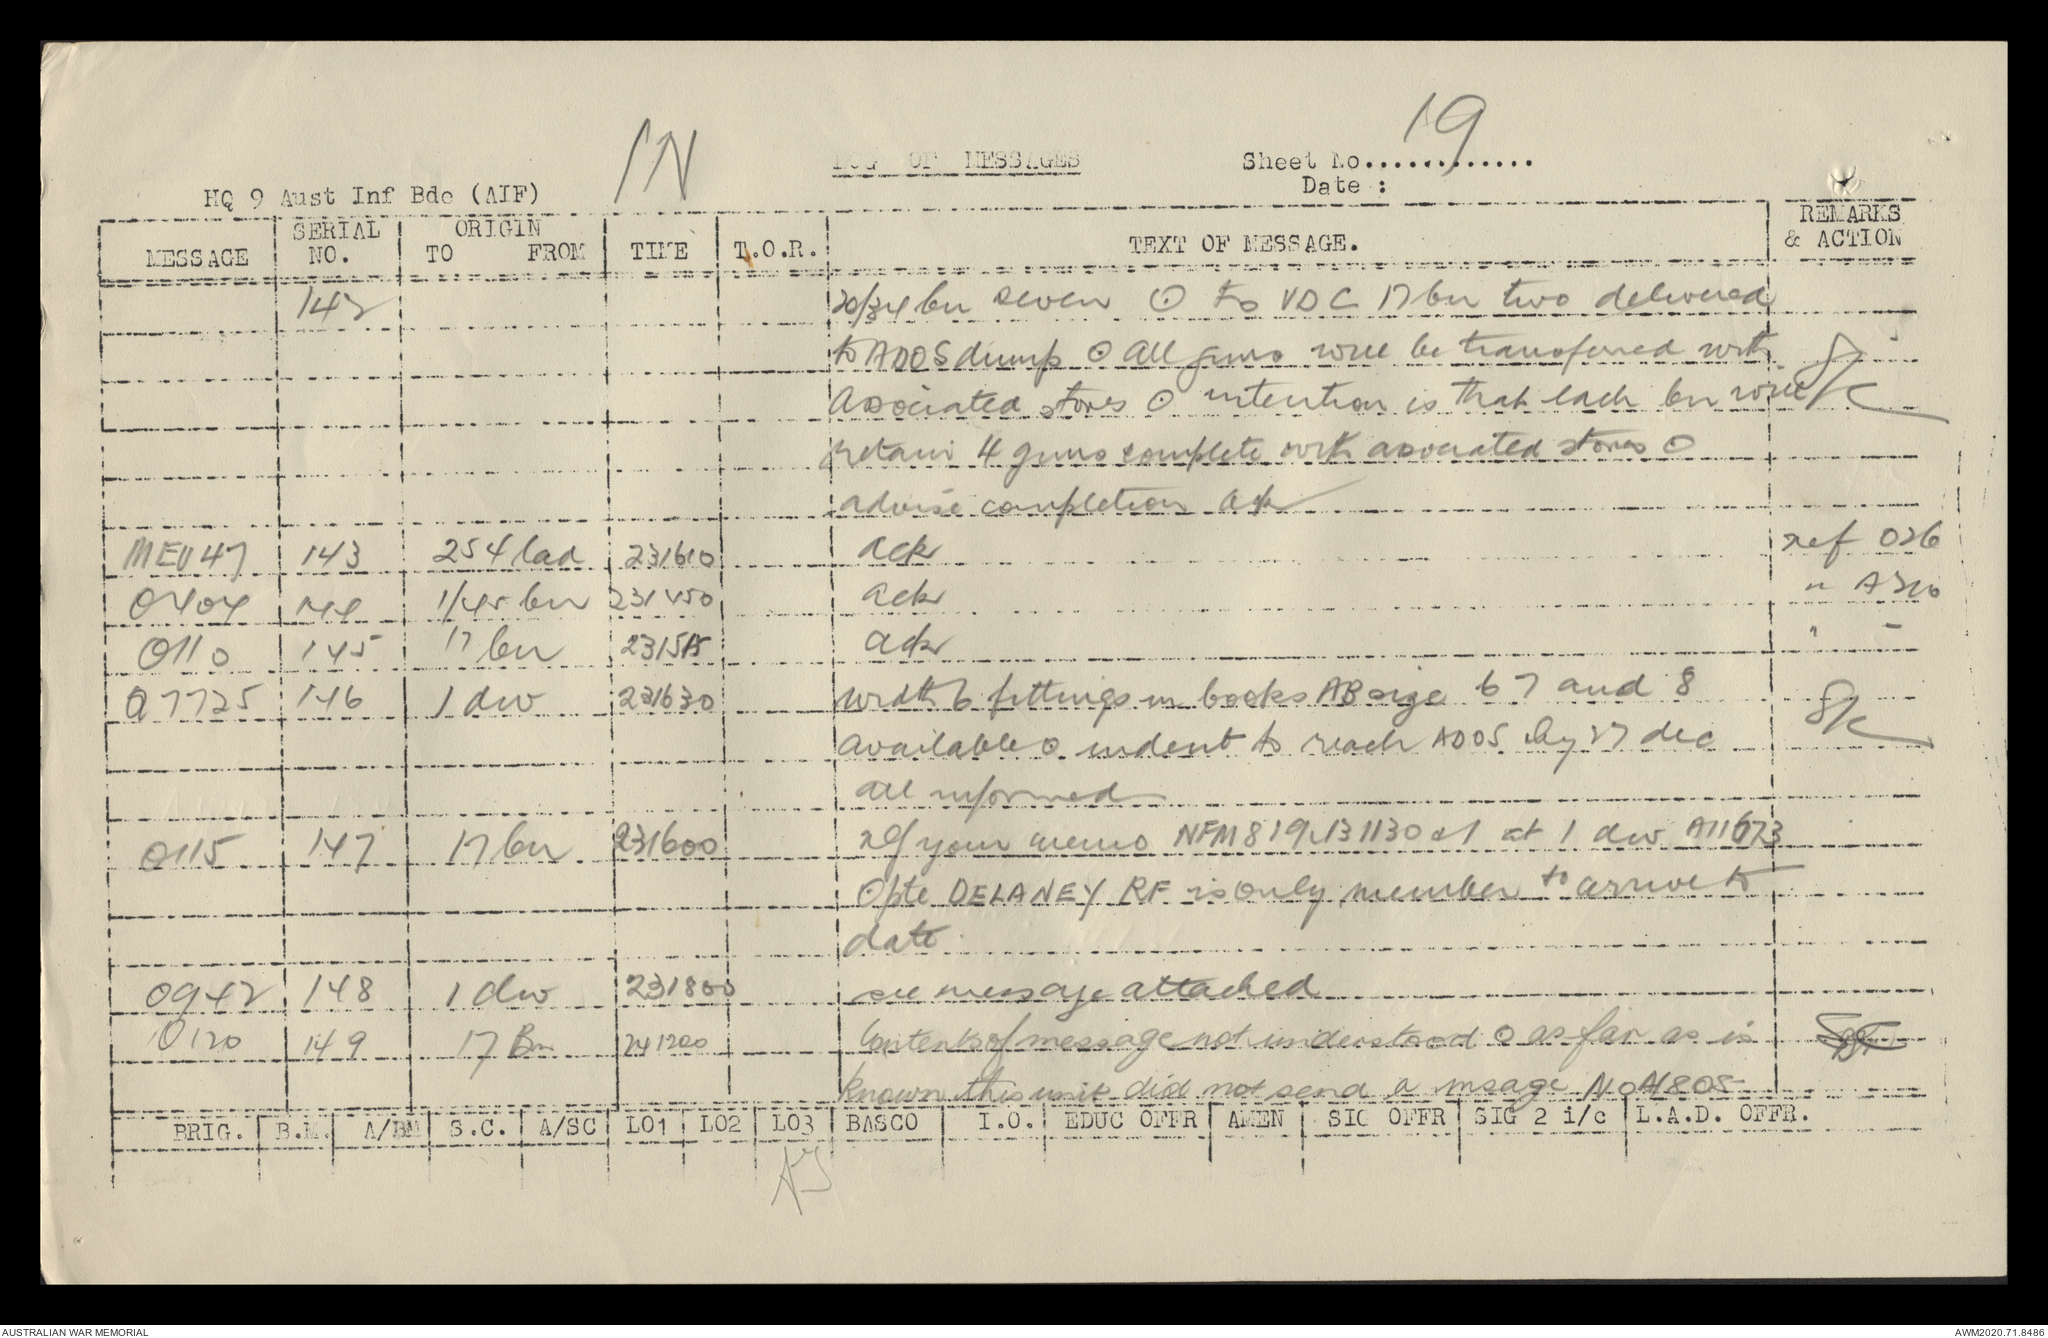 IN
19
LOG OF MESSAGES
Sheet No.............
Date :
HQ 9 Aust Inf Bde (AIF)
MESSAGE SERIAL NO. ORIGIN TO FROM TIME T.O.R. TEXT OF MESSAGE. REMARKS & ACTION
142 20/34 bn seven ⊙ to VDC 17 bn two delivered
to ADOS dump ⊙ all guns will be transferred with
associated stores ⊙ intention is that each bn will S/C
retain 4 guns complete with associated stores ⊙
advise completion ack
MEU47 143 254 lad 231610 ack ref 026
O404 144 1/45 bn 231450 ack " A320
O110 145 17 bn 231515 ack " "
Q7725 146 1 div 231630 width 6 fittings in books AB size 6 7 and 8 S/C
available ⊙ indent to reach ADOS by 27 dec
all informed
O115 147 17 bn 231600 ref your memo at 1 div A11673
⊙ pte DELANEY RF is only member to arrive to
date
O942 148 1 div 231800 see message attached
O120 149 17 Bn 241200 Contents of message not understood ⊙ as far as is
known this unit did not send a msage No A1805
BRIG. B.M. A/BM S.C. A/SC LO1 LO2 LO3 BASCO I.O. EDUC OFFR AMEN SIG OFFR SIG 2 i/c L.A.D. OFFR.
AUSTRALIAN WAR MEMORIAL
AWM2020.71.8486